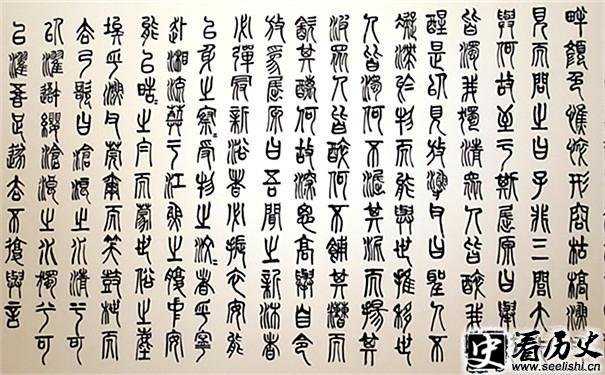 畔顏色憔悴形容枯槁漁
見而問之曰子非三閭大
與何故至于斯屈原曰舉
皆濁我獨清眾人皆醉我
醒是以見放漁父曰聖人不
凝滯於物而能與世推移世
人皆濁何不淈其泥而揚其
波眾人皆醉何不餔其糟而
歠其醨何故深思高舉自令
放為屈原曰吾聞之新沐者
必彈冠新浴者必振衣安能
以身之察〻受物之汶〻者乎寧
赴湘流葬于江魚之腹中安
能以皓〻之白而蒙世俗之塵
埃乎漁父莞爾而笑鼓枻而
去乃歌曰滄浪之水清兮可
以濯吾纓滄浪之水濁兮可
以濯吾足遂去不復與言
史看历史
www.seelishi.cn